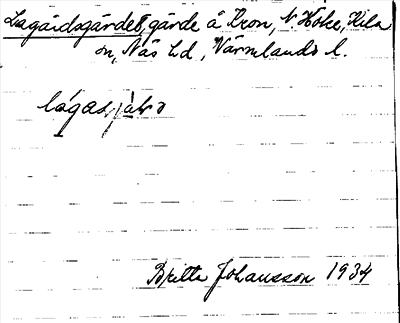 Lagårdsgärdet, gärde å Kron, N. Köke, Kila
sn, Näs hd, Värmlands l.
Britta Johansson 1934